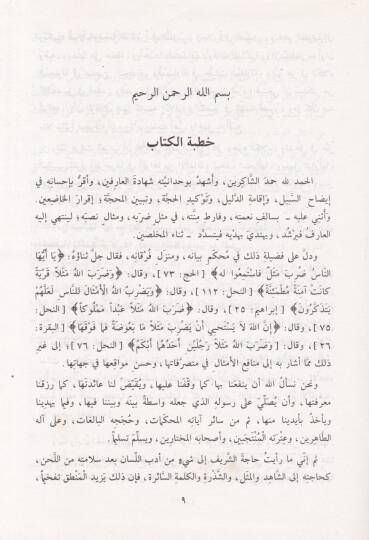 بسم الله الرحمن الرحيم
خطبة الكتاب
الحمد لله حمدَ الشَّاكِرين، وأشهدُ بوحدانيَّتِه شهادةَ العارِفين، وأقرُّ بإحسانِه في
إيضاح السَّبيل، وإقامةِ الدَّليل، وتوكيدِ الحجة، وتبيين المحجَّة؛ إقرارَ الخاضِعين.
وأثني عليه ـ بسالفِ نعمته، وفارطِ مِنَّته، في مثلٍ ضرَبه، ومثالٍ نصبَه؛ لينتهي إليه
العارفُ فيَرْشُد، ويهتديَ بهديِه فيتسدَّد ـ ثناء المخلصين.
ودلَّ على فضيلةِ ذلك في مُحكَمِ بيانِه، ومنزلِ فُرْقانِه، فقال جلَّ ثناؤهُ: ﴿يَا أيُّهَا
النَّاسُ ضُرِبَ مَثَلٌ فَاستَمِعُوا لَه﴾ [الحج: ٧٣]، وقال: ﴿وَضَرَبَ اللَّهُ مَثَلًا قَرْيَةً
كانَتْ آمِنَةً مُطْمَئِنَّةً﴾ [النحل: ١١٢]، وقال: ﴿وَيَضْرِبُ اللَّهُ الأَمْثَالَ لِلنَّاسِ لَعَلَّهُمْ
يَتَذَكَّرُونَ﴾ [إبراهيم: ٢٥]، وقال: ﴿ضَرَبَ اللَّهُ مَثَلًا عَبْداً مَمْلُوكاً﴾ [النحل:
٧٥]، وقال: ﴿إِنَّ اللَّهَ لاَ يَسْتَحيي أَنْ يَضْرِبَ مَثَلًا مَا بَعُوضَةً فَما فَوْقَهَا﴾ [البقرة:
٢٦]، وقال: ﴿وَضَرَبَ اللَّهُ مَثَلًا رَجُلَيْنِ أَحَدُهُمَا أَبْكَمُ﴾ [النحل: ٧٦]؛ إلى غيرِ
ذلك ممَّا أشار به إلى منافع الأمثال في متصرَّفاتها، وحسن مواقِعها في جهاتها.
ونحن نسألُ الله أن ينفعَنا بها كما وقَفَنا عليها، ويُقَيِّضَ لنا عائدتَها، كما رزقَنا
معرفتَها، وأن يُصلّيَ على رسولِه الذي جعله واسطةً بينَه وبيننا فيها، وفيما يهدينا
ويأخذُ بأيدينا منها، ثم من سائر آياتِه المحكمات، وحُججِه البالغات، وعلى آله
الطَّاهرين، وعِتْرتِه المُنْتَجَبين، وأصحابِه المختارِين، ويسلّمَ تسليماً.
ثم إنّي ما رأيتُ حاجةَ الشَّريفِ إلى شيءٍ من أدب اللِّسان بعد سلامتِه من اللَّحن،
كحاجتِه إلى الشَّاهدِ والمثَل، والشَّذْرةِ والكلمةِ السَّائرة، فإن ذلك يَزيد المَنْطق تفخيماً،
٩